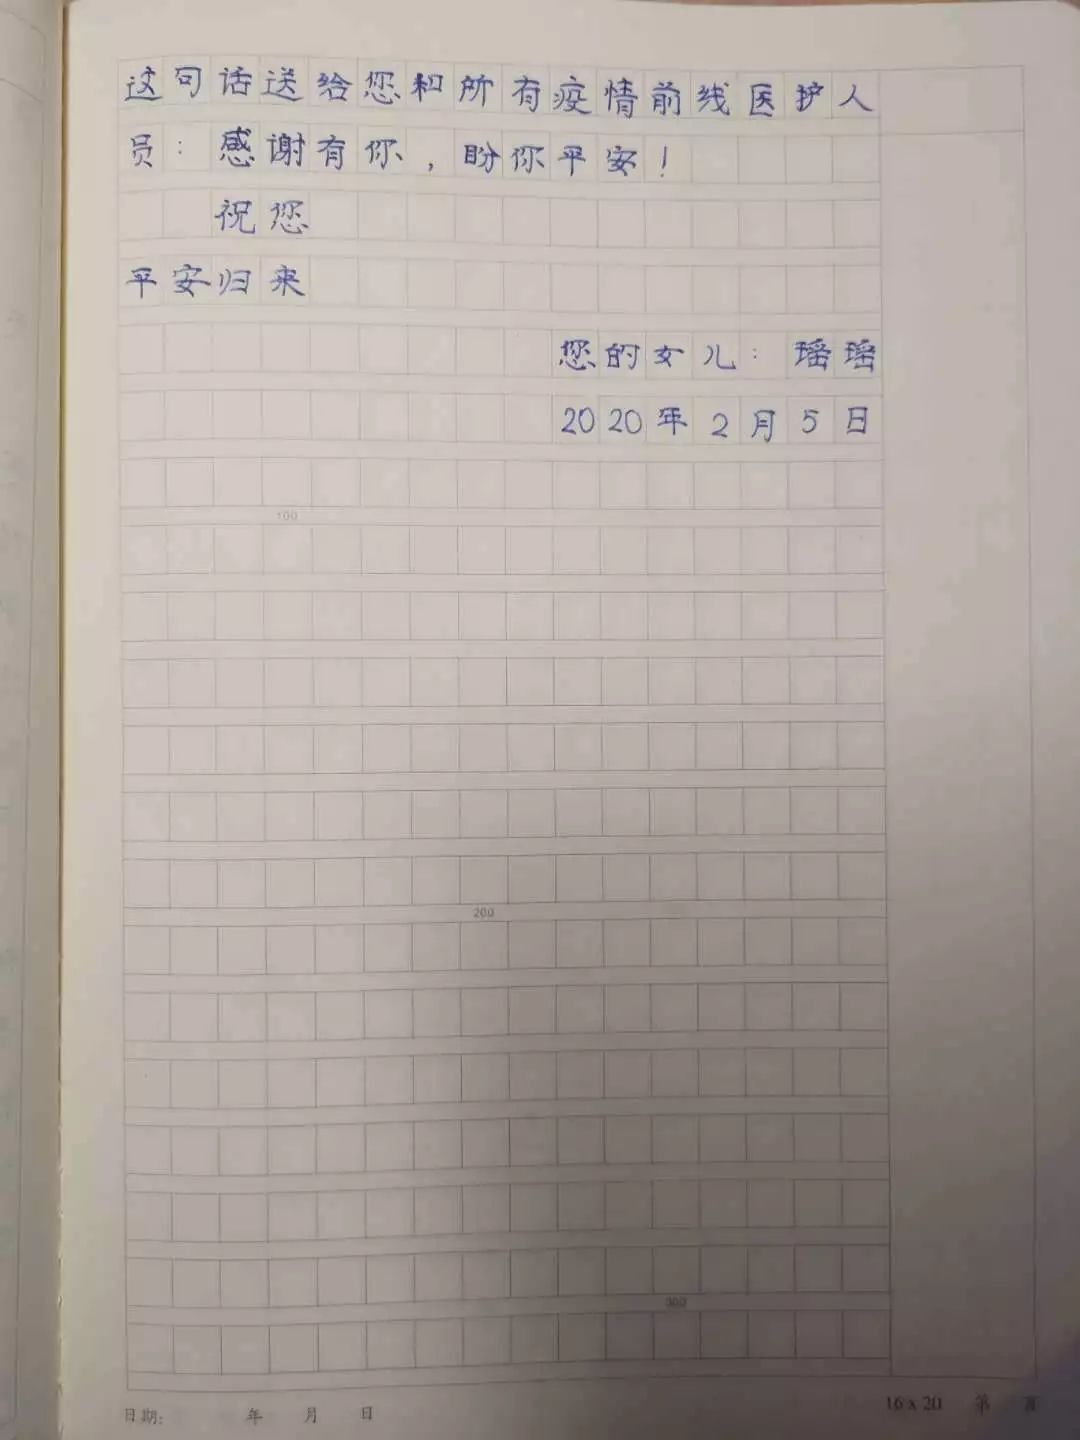 这句话送给您和所有疫情前线医护人
员：感谢有你，盼你平安！
祝您
平安归来
您的女儿：瑶瑶
2020年2月5日
100
200
300
日期： 年 月 日
16 x 20 第 页